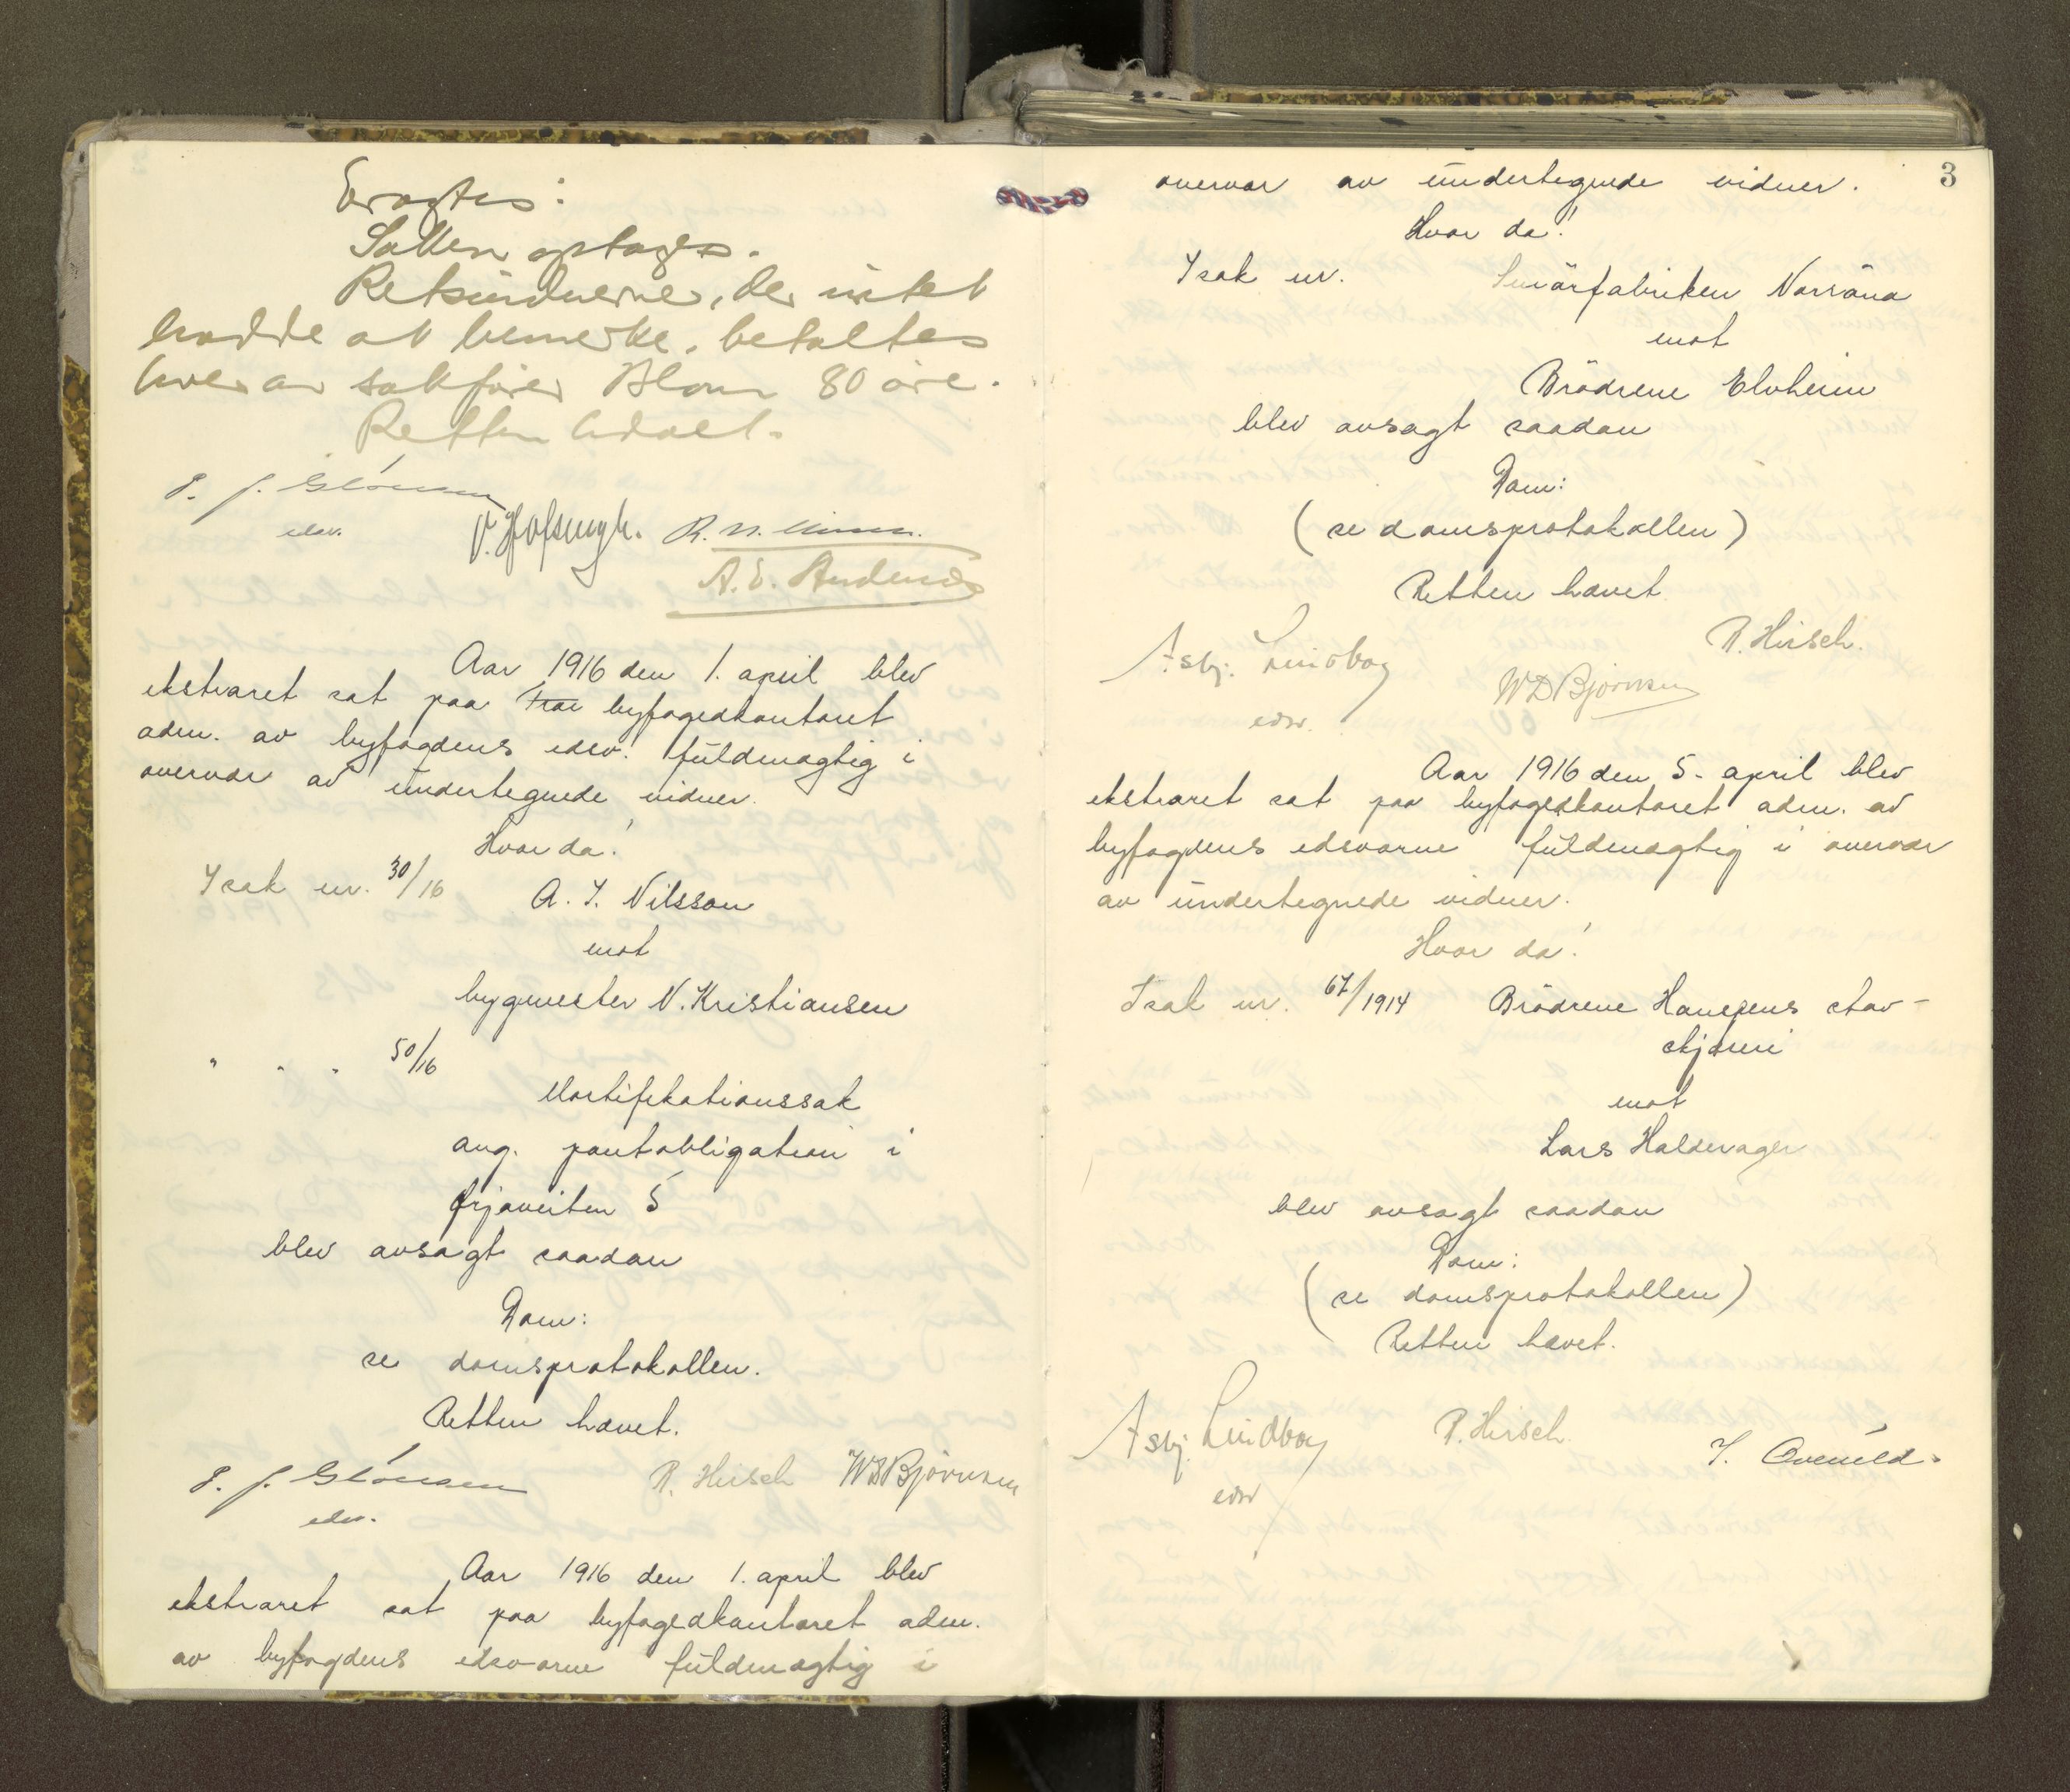 Eragtes:
Sakken optages.
Retsvidnerne, der intet
hadde at bemerke, betaltes
hver av sakfører Blom 80 øre.
Retten hævet.
edsv.
A. E. Andersen
Aar 1916 den 1. april blev
ekstraret sat paa byfogedkontoret
adm. av byfogdens edsv. fuldmægtig i
overvær av undertegnede vidner.
Hvor da!
I sak nr. 30/16 A. I. Nilsson
mot
bygmester N. Kristiansen
" " " 50/16
Mortifikationssak
ang. pantobligation i
Ørjaveiten 5
blev avsagt saadan
Dom:
se domsprotokollen.
Retten hævet.
edsv.
R. Hirsch W D Bjørnsen
Aar 1916 den 1. april blev
ekstraret sat paa byfogedkontoret adm.
av byfogdens edsvorne fuldmægtig i
3
overvær av undertegnede vidner.
Hvor da!
I sak nr. Smörfabriken Norröna
mot
Brödrene Elvheim
blev avsagt saadan
Dom:
(se domsprotokollen)
Retten hævet
R. Hirsch.
Asbj. Lindboy
edsv.
W D Bjørnsen
Aar 1916 den 5. april blev
ekstraret sat paa byfogedkontoret adm. av
byfogdens edsvorne fuldmægtig i overvær
av undertegnede vidner.
Hvor da!
I sak nr. 67/1914 Brödrene Hansens stav-
skjæreri
mot
Lars Haldorager
blev avsagt saadan
Dom:
(se domsprotokollen)
Retten hævet.
Asbj. Lindboy
edsv
R. Hirsch.